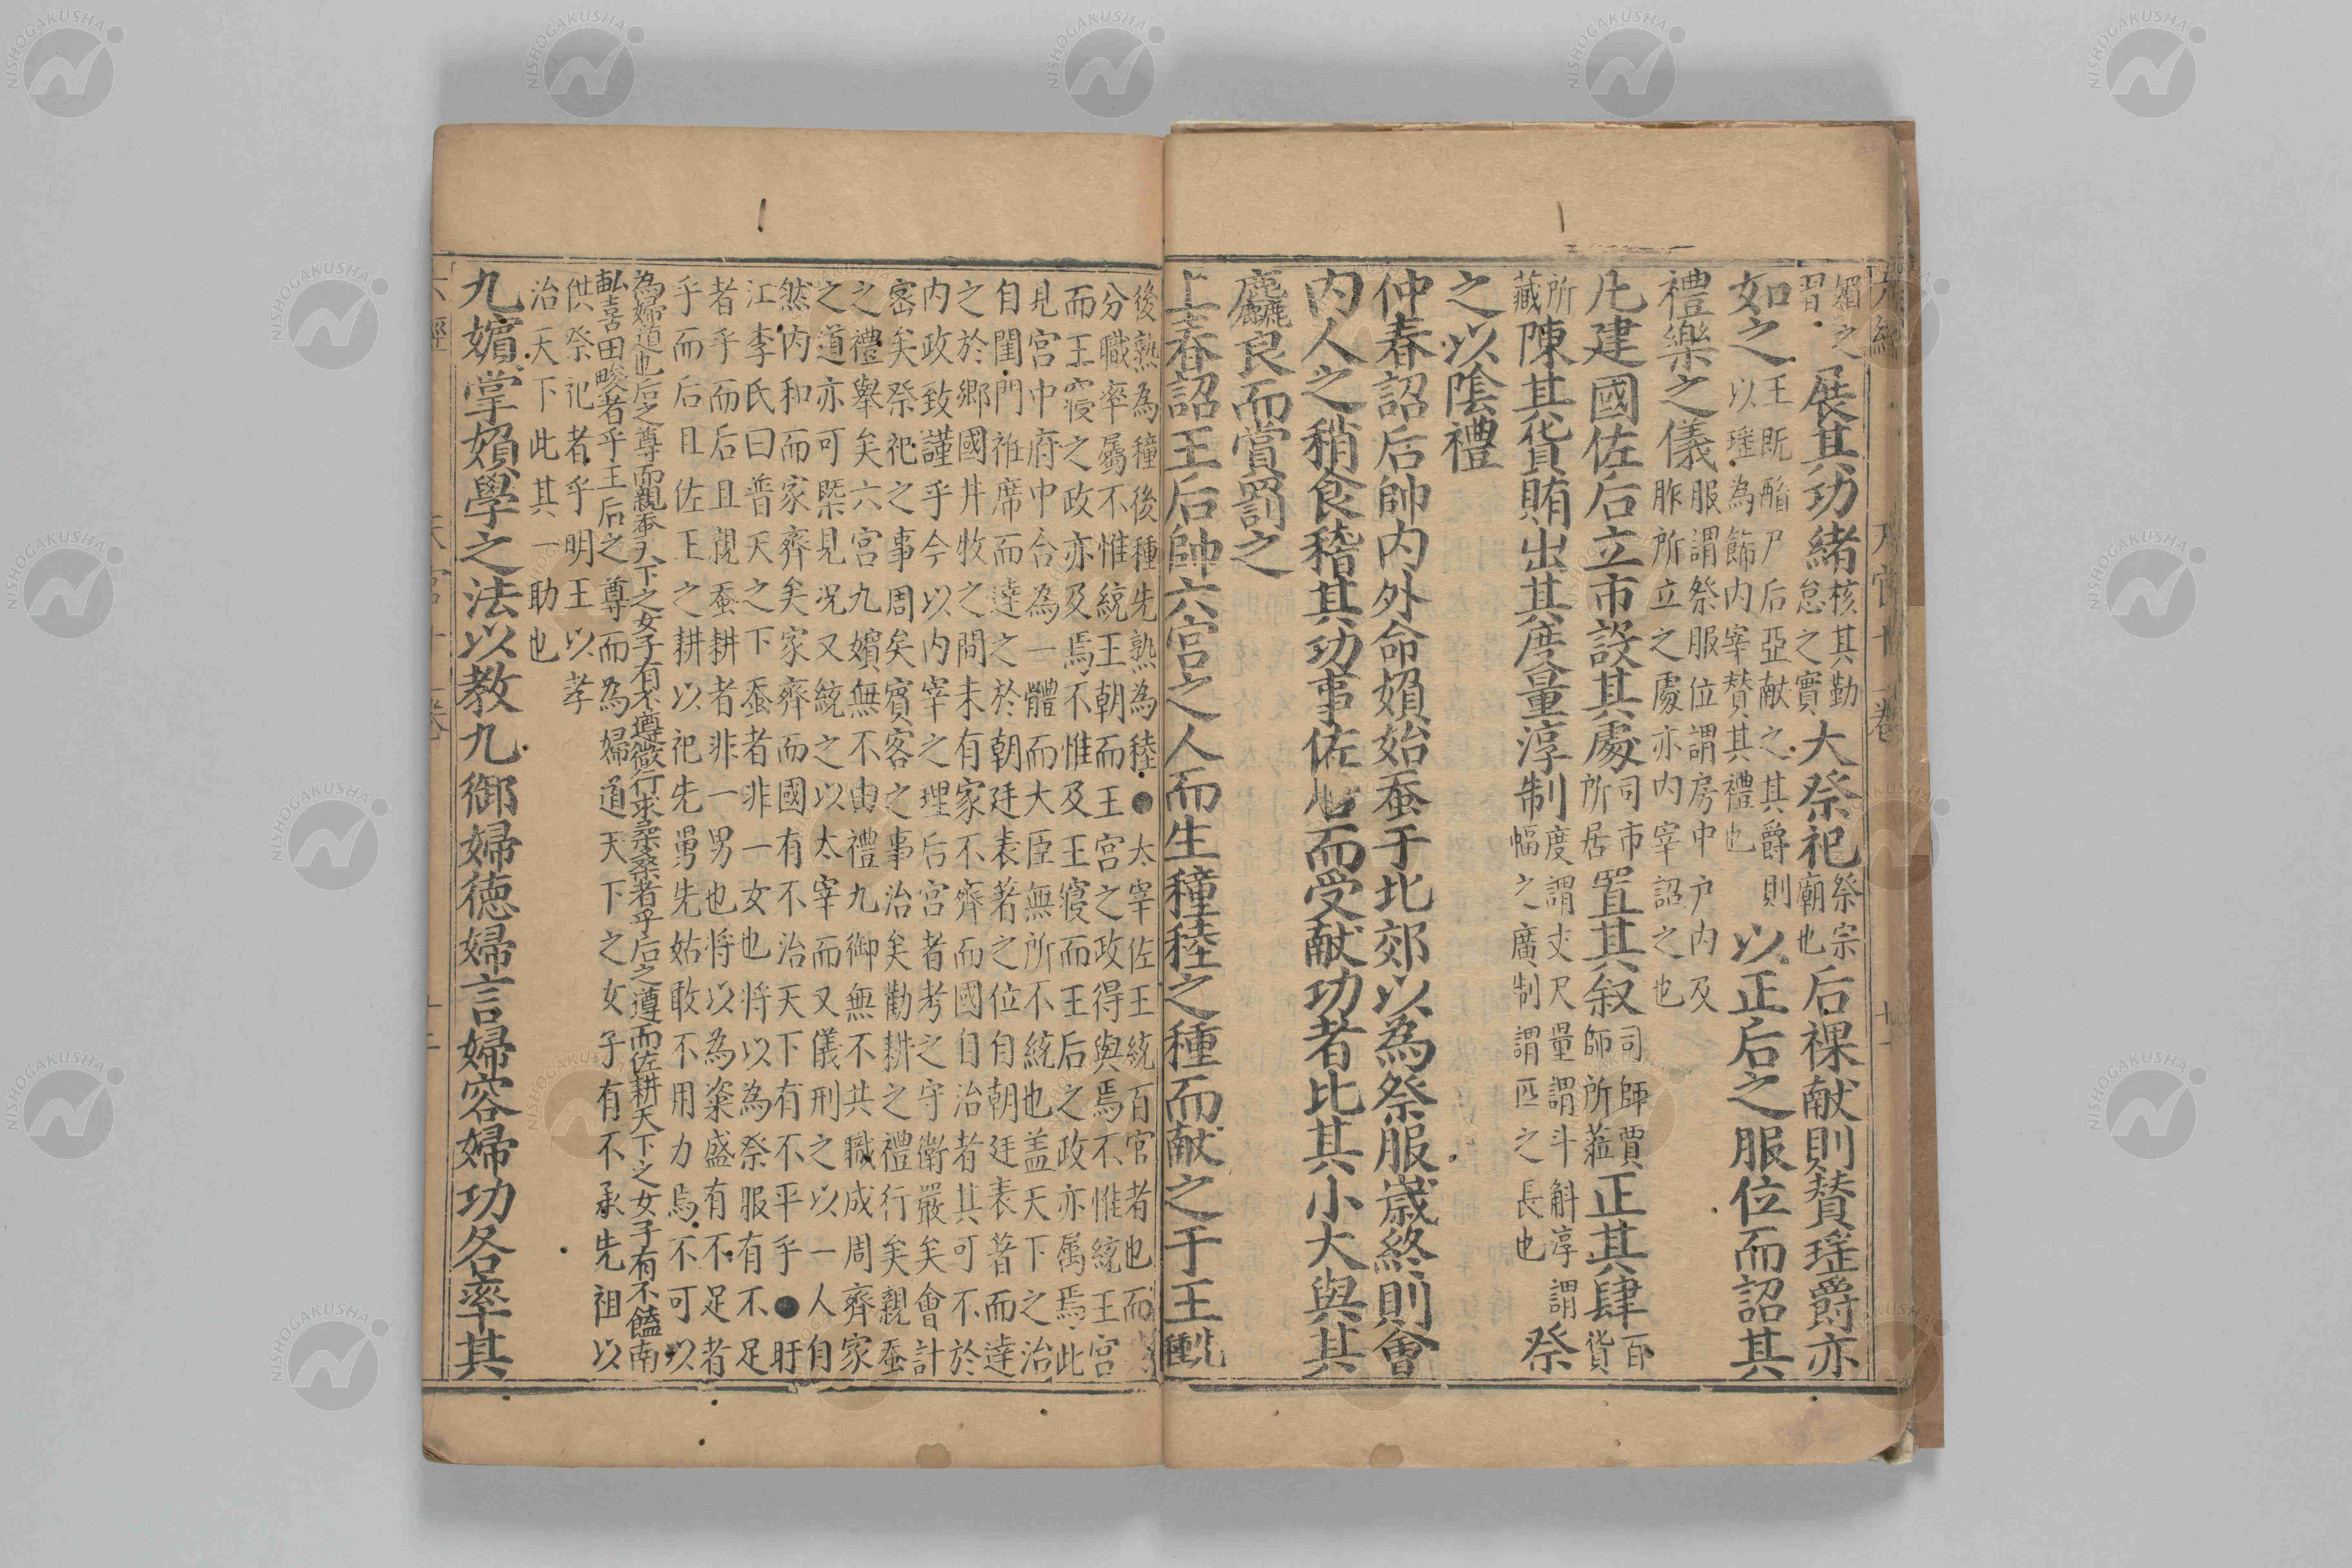 媚之習展其功緒核其勤怠之實大祭祀祭宗廟也后祼献則賛瑶爵亦
如之王既酳尸后亞献之其爵則以瑶為飾内宰賛其禮也以正后之服位而詔其
禮樂之儀服謂祭服位謂房中户内及胙所立之處亦内宰詔之也
凡建國佐后立市設其處司市所居置其叙司師賈師所蒞正其肆百貨
所藏陳其貨賄出其度量淳制度謂丈尺量謂斗斛淳謂幅之廣制謂匹之長也祭
之以陰禮
仲春詔后帥内外命婦始蚕于北郊以為祭服歳終則會
内人之稍食稽其功事佐后而受献功者比其小大與其
麤良而賞罰之
上春詔王后帥六宮之人而生穜稑之種而献之于王先種
後熟為穜後種先熟為稑●太宰佐王統百官者也而
分職率屬不惟統王朝而王宮之政得與焉不惟統王宮
而王寢之政亦及焉不惟及王寢而王后之政亦属焉此
見宮中府中合為一體而大臣無所不統也盖天下之治
自閨門袵席而達之於朝廷表著之位自朝廷表著而達
之於郷國井牧之間未有家不齊而國自治者其可不於
内政致謹乎今以内宰之理后宮者考之守衛嚴矣會計
宻矣祭祀之事周矣賓客之事治矣勸耕之禮行矣親蚕
之禮舉矣六宮九嬪無不由禮九御無不共職成周齊家
之道亦可槩見况又統之以太宰而又儀刑之以一人自
然内和而家齊矣家齊而國有不治天下有不平乎●盱
江李氏曰普天之下蚕者非一女也将以為祭服有不足
者乎而后且親蚕耕者非一男也将以為粢盛有不足者
乎而后且佐王之耕以祀先舅先姑敢不用力焉不可以
為婦道也后之尊而親蚕天下之女子有不遵微行求柔桑者乎后之遵而佐耕天下之女子有不饁南
畝喜田畯者乎王后之尊而為婦道天下之女子有不承先祖以
供祭祀者乎明王以孝
治天下此其一助也
九嬪掌婦學之法以教九御婦徳婦言婦容婦功各率其